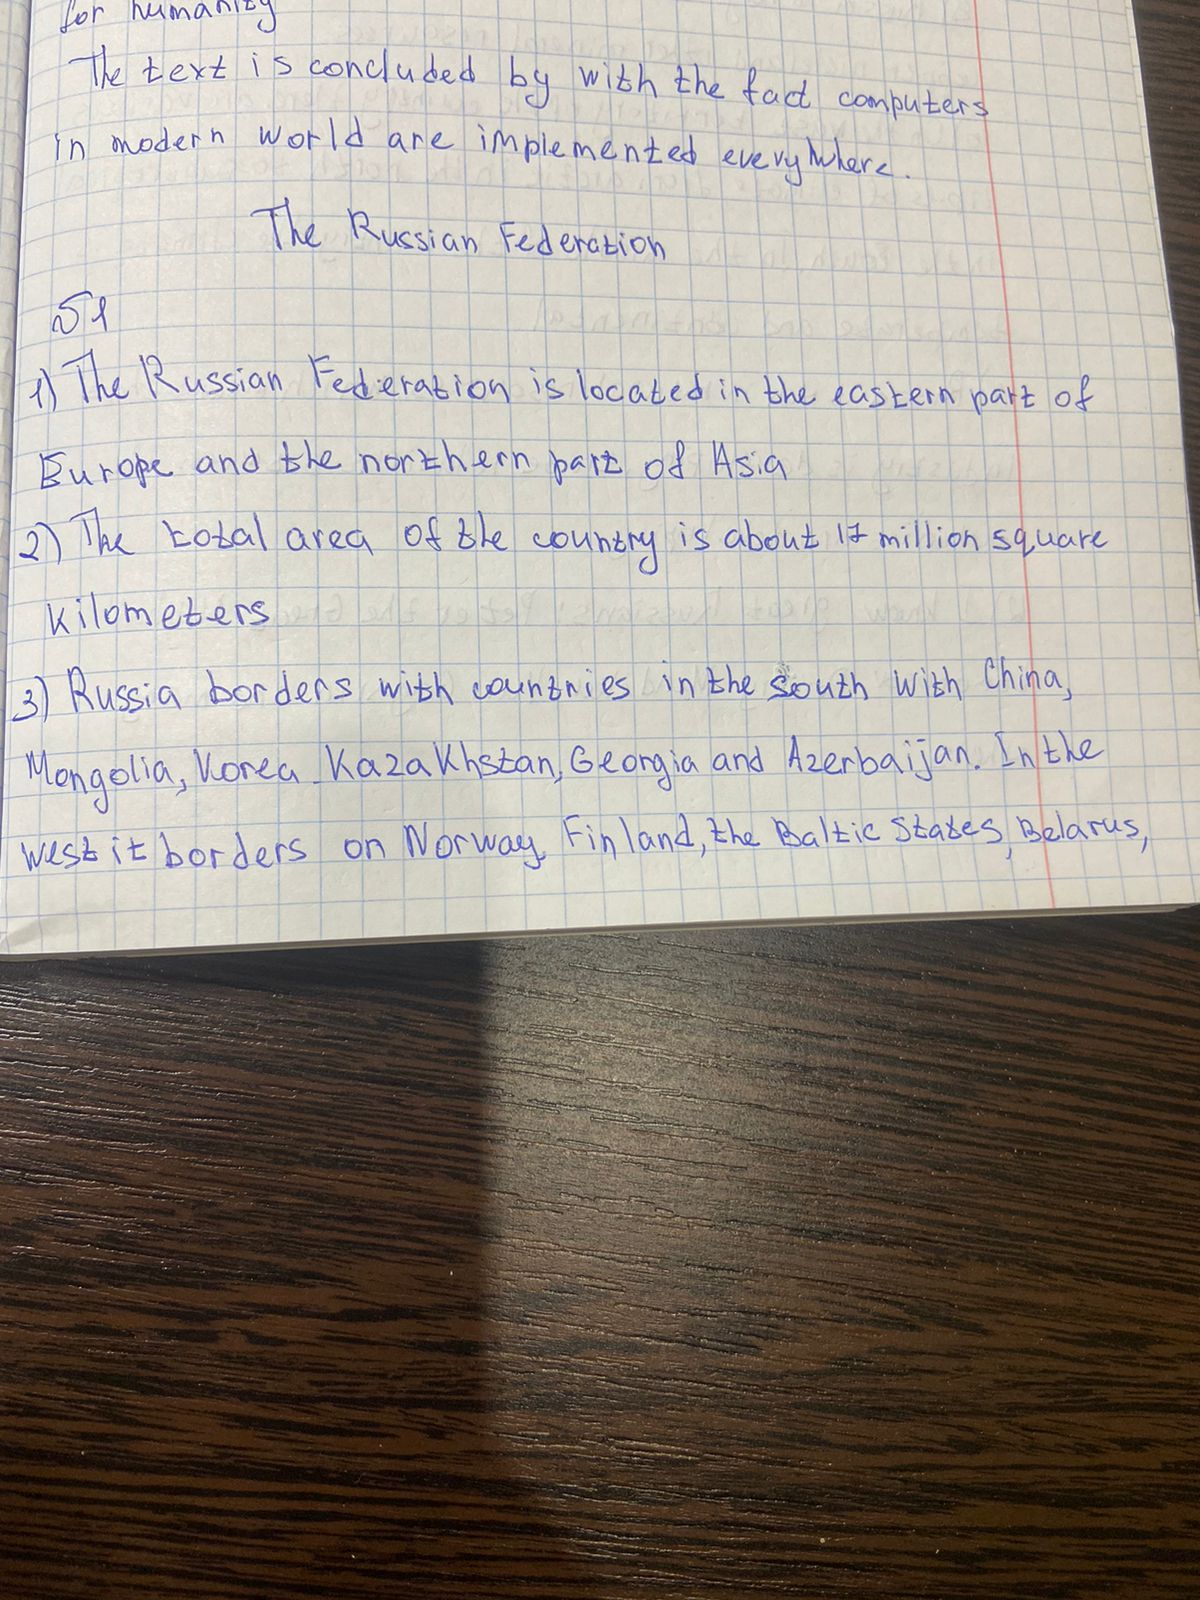 for humanity
The text is concluded by with the fact computers
in modern world are implemented everywhere.
The Russian Federation
№1
1) The Russian Federation is located in the eastern part of
Europe and the northern part of Asia
2) The total area of the country is about 17 million square
kilometers
3) Russia borders with countries in the south with China,
Mongolia, Korea Kazakhstan, Georgia and Azerbaijan. In the
west it borders on Norway, Finland, the Baltic States, Belarus,